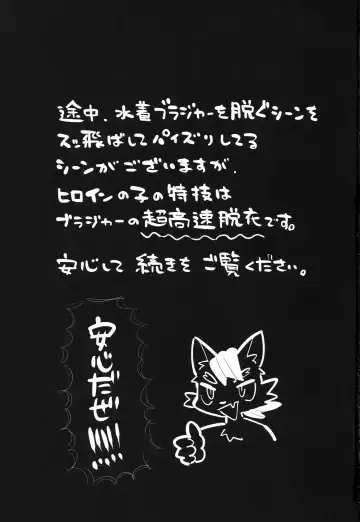 途中、水着ブラジャーを脱ぐシーンを
スッ飛ばしてパイズリしてる
シーンがございますが、
ヒロインの子の特技は
ブラジャーの超高速脱衣です。
安心して続きをご覧ください。
安心だぜ!!!!!